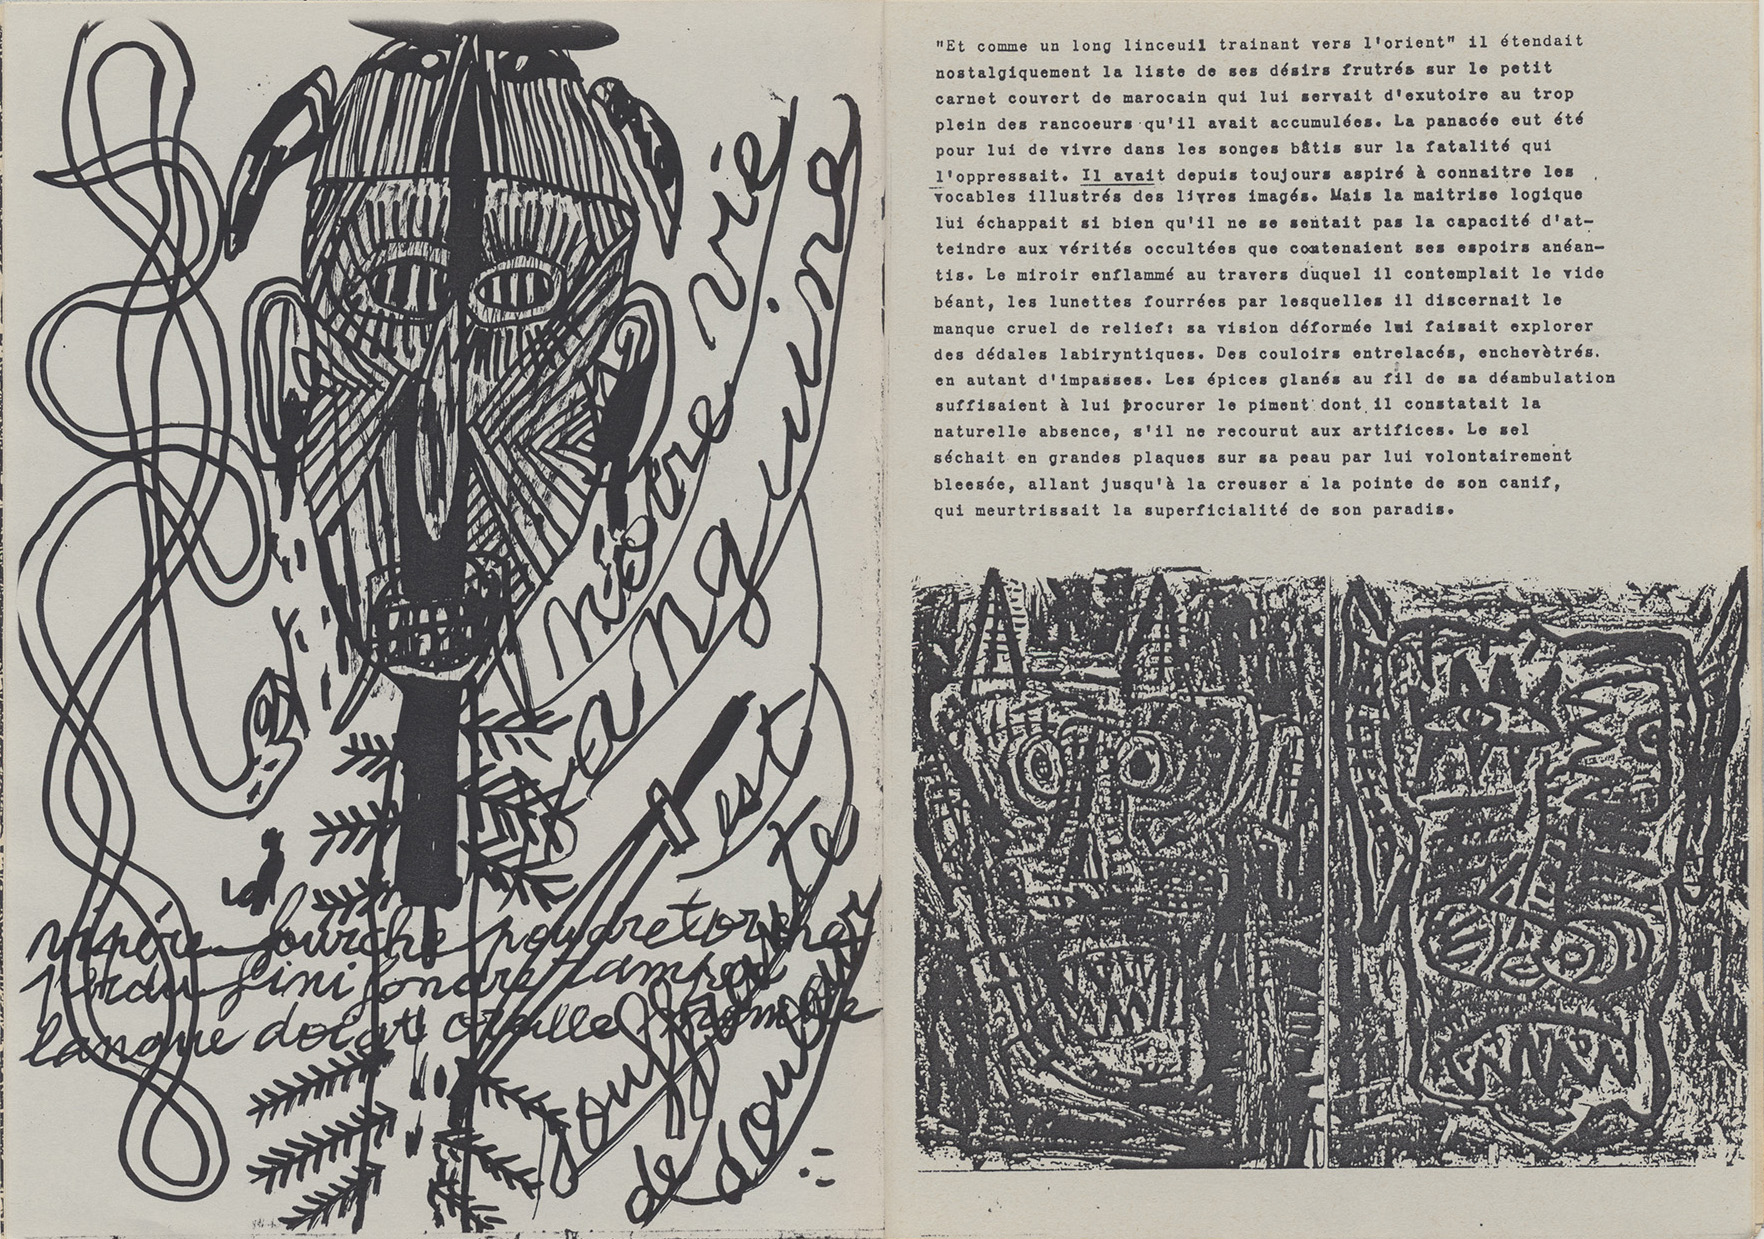 vie
sanguine
est
vipère fourche
perdu fini
langue doigt
souffre
de
douleur
"Et comme un long linceuil trainant vers l'orient" il étendait
nostalgiquement la liste de ses désirs frutrés sur le petit
carnet couvert de marocain qui lui servait d'exutoire au trop
plein des rancoeurs qu'il avait accumulées. La panacée eut été
pour lui de vivre dans les songes bâtis sur la fatalité qui
l'oppressait. Il avait depuis toujours aspiré à connaitre les
vocables illustrés des livres imagés. Mais la maitrise logique
lui échappait si bien qu'il ne se sentait pas la capacité d'at-
teindre aux vérités occultées que contenaient ses espoirs anéan-
tis. Le miroir enflammé au travers duquel il contemplait le vide
béant, les lunettes fourrées par lesquelles il discernait le
manque cruel de relief: sa vision déformée lui faisait explorer
des dédales labiryntiques. Des couloirs entrelacés, enchevètrés.
en autant d'impasses. Les épices glanés au fil de sa déambulation
suffisaient à lui procurer le piment dont il constatait la
naturelle absence, s'il ne recourut aux artifices. Le sel
séchait en grandes plaques sur sa peau par lui volontairement
bleesée, allant jusqu'à la creuser a la pointe de son canif,
qui meurtrissait la superficialité de son paradis.